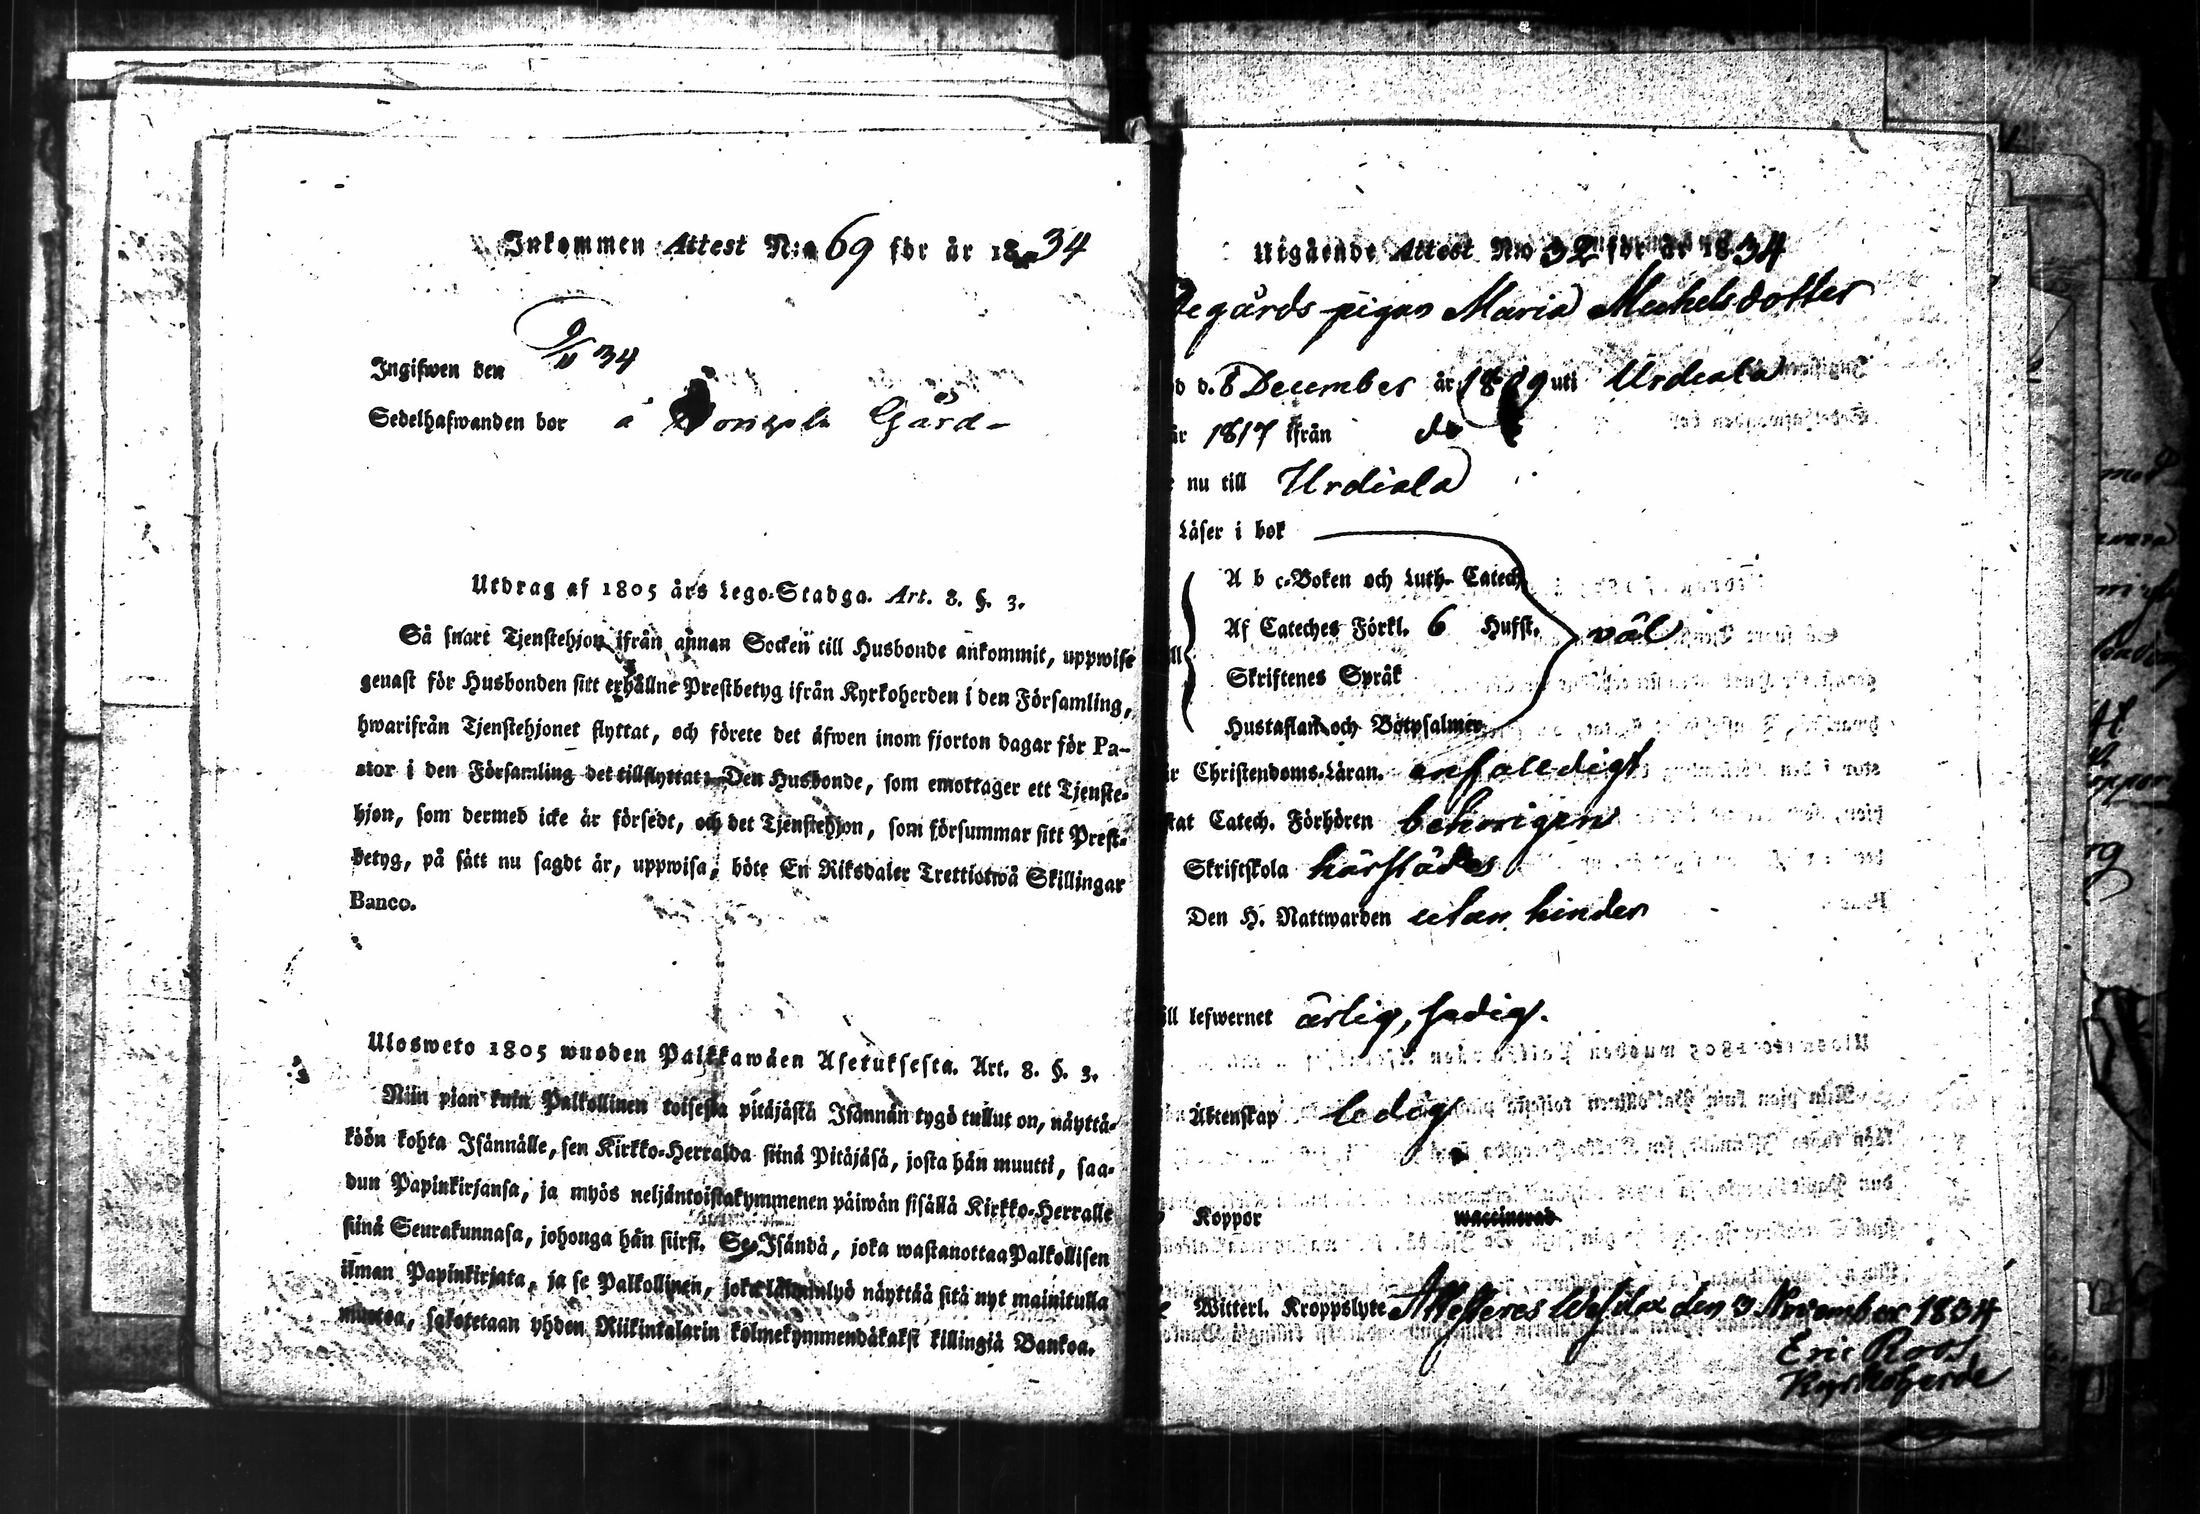 Inkommen Attest N:o 69 för år 1834
Ingifwen den 9/11 34
Sedelhafwanden bor å Gård
Utdrag af 1805 års Lego-Stadga. Art. 8. §. 3.
Så snart Tjenstehjon ifrån annan Socken till Husbonde ankommit, uppwise
genast för Husbonden sitt erhållne Prestbetyg ifrån Kyrkoherden i den Församling,
hwarifrån Tjenstehjonet flyttat, och förete det äfwen inom fjorton dagar för Pa-
stor i den Församling det tillflyttat. Den Husbonde, som emottager ett Tjenste-
hjon, som dermed icke är försedt, och det Tjenstehjon, som försummar sitt Prest-
betyg, på sätt nu sagdt är, uppwisa, böte En Riksdaler Trettiotwå Skillingar
Banco.
Ulosweto 1805 wuoden Palkkawäen Asetuksesta. Art. 8. §. 3.
Niin pian kuin Palkollinen toisesta pitäjästä Isännän tygö tullut on, näyttä-
köön kohta Isännälle, sen Kirkko-Herralda siinä Pitäjäsä, josta hän muutti, saa-
dun Papinkirjansa, ja myös neljäntoistakymmenen päiwän sisällä Kirkko-Herralle
siinä Seurakunnasa, johonga hän siirsi. Se Isändä, joka wastanottaa Palkollisen
ilman Papinkirjata, ja se Palkollinen, joka laiminlyö näyttää sitä nyt mainitulla
muotoa, sakotetaan yhden Riikinkalarin kolmekymmendäkaksi killingiä Bankoa.
Utgående Attest N:o 32 för år 1834
gårds pigan Maria Michelsdotter
d. 8 December år 1809 uti Urdiala
år 1817 ifrån do
nu till Urdiala
Läser i bok
A b c-Boken och Luth. Catech.
Af Cateches Förkl. 6 Hufst. väl
Skriftenes Språk
Hustaflan och Botpsalmer
Christendoms-Läran. enfaldigt
Catech. Förhören behörigen
Skriftskola härstädes
Den H. Nattwarden utan hinder
lefwernet ärlig, sedig.
Äktenskap ledig
Koppor waccinerad
Witterl. Kroppslyte Attesteres den 3 November 1834
Eric Roos
Kyrkoherde